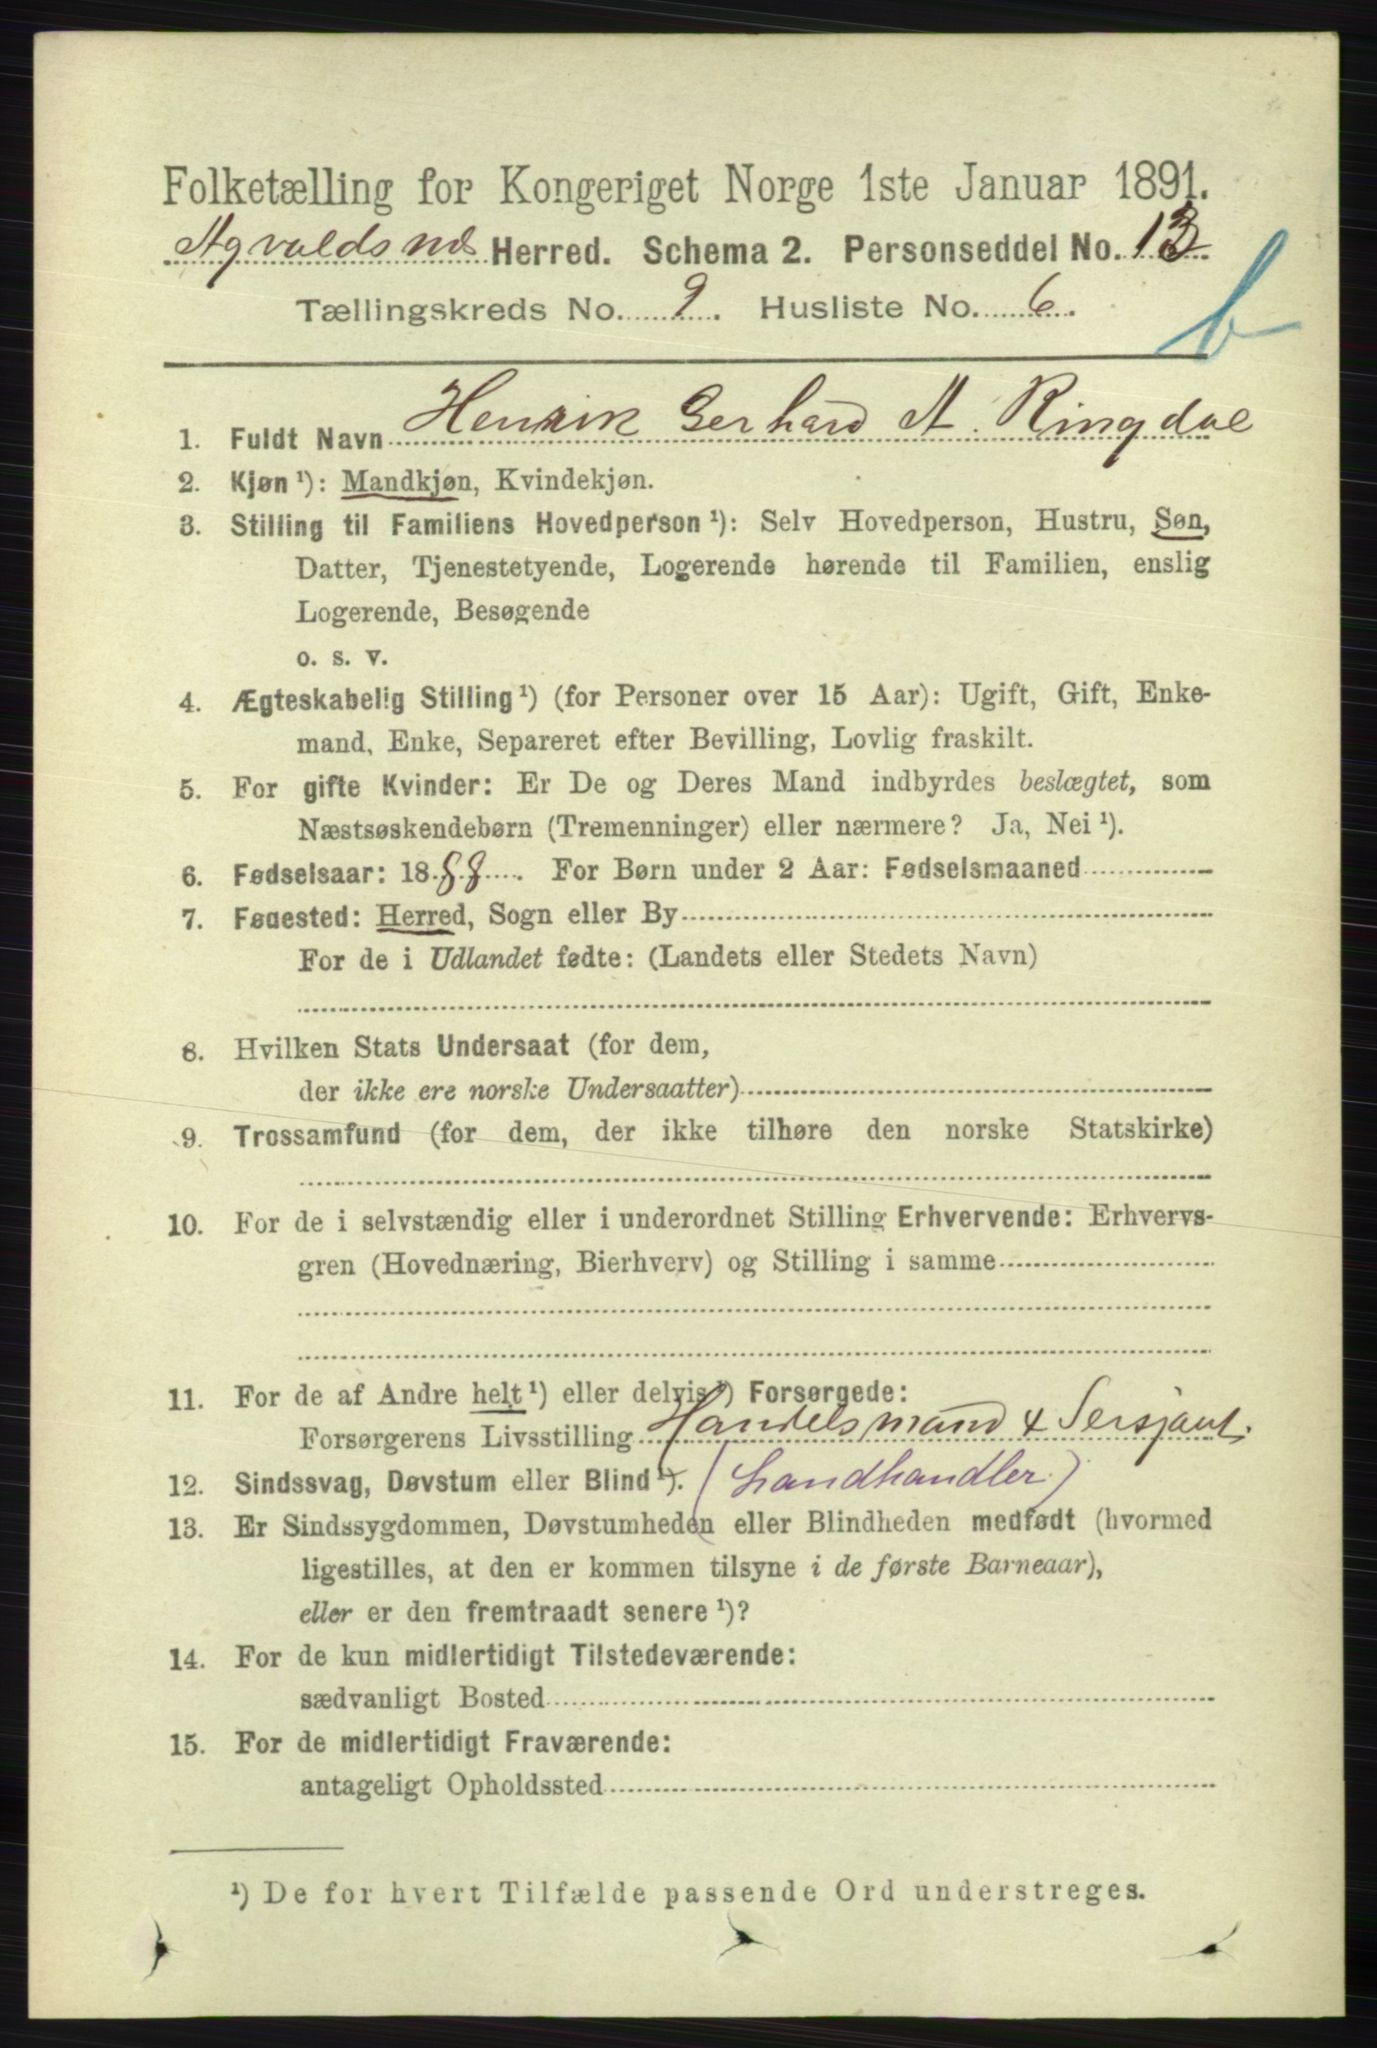 Folketælling for Kongeriget Norge 1ste Januar 1891.
Agvaldsnes Herred. Schema 2. Personseddel No. 13
Tællingskreds No. 9. Husliste No. 6.
b
1. Fuldt Navn Henrik Gerhard A. Ringdal
2. Kjøn ¹): Mandkjøn, Kvindekjøn.
3. Stilling til Familiens Hovedperson ¹): Selv Hovedperson, Hustru, Søn,
Datter, Tjenestetyende, Logerende hørende til Familien, enslig
Logerende, Besøgende
o. s. v.
4. Ægteskabelig Stilling ¹) (for Personer over 15 Aar): Ugift, Gift, Enke-
mand, Enke, Separeret efter Bevilling, Lovlig fraskilt.
5. For gifte Kvinder: Er De og Deres Mand indbyrdes beslægtet, som
Næstsøskendebørn (Tremenninger) eller nærmere? Ja, Nei ¹).
6. Fødselsaar: 1888. For Børn under 2 Aar: Fødselsmaaned
7. Fødested: Herred, Sogn eller By
For de i Udlandet fødte: (Landets eller Stedets Navn)
8. Hvilken Stats Undersaat (for dem,
der ikke ere norske Undersaatter)
9. Trossamfund (for dem, der ikke tilhøre den norske Statskirke)
10. For de i selvstændig eller i underordnet Stilling Erhvervende: Erhvervs-
gren (Hovednæring, Bierhverv) og Stilling i samme
11. For de af Andre helt ¹) eller delvis ¹) Forsørgede:
Forsørgerens Livsstilling Handelsmand & Sersjant.
12. Sindssvag, Døvstum eller Blind ¹). (Landhandler)
13. Er Sindssygdommen, Døvstumheden eller Blindheden medfødt (hvormed
ligestilles, at den er kommen tilsyne i de første Barneaar),
eller er den fremtraadt senere ¹)?
14. For de kun midlertidigt Tilstedeværende:
sædvanligt Bosted
15. For de midlertidigt Fraværende:
antageligt Opholdssted
¹) De for hvert Tilfælde passende Ord understreges.